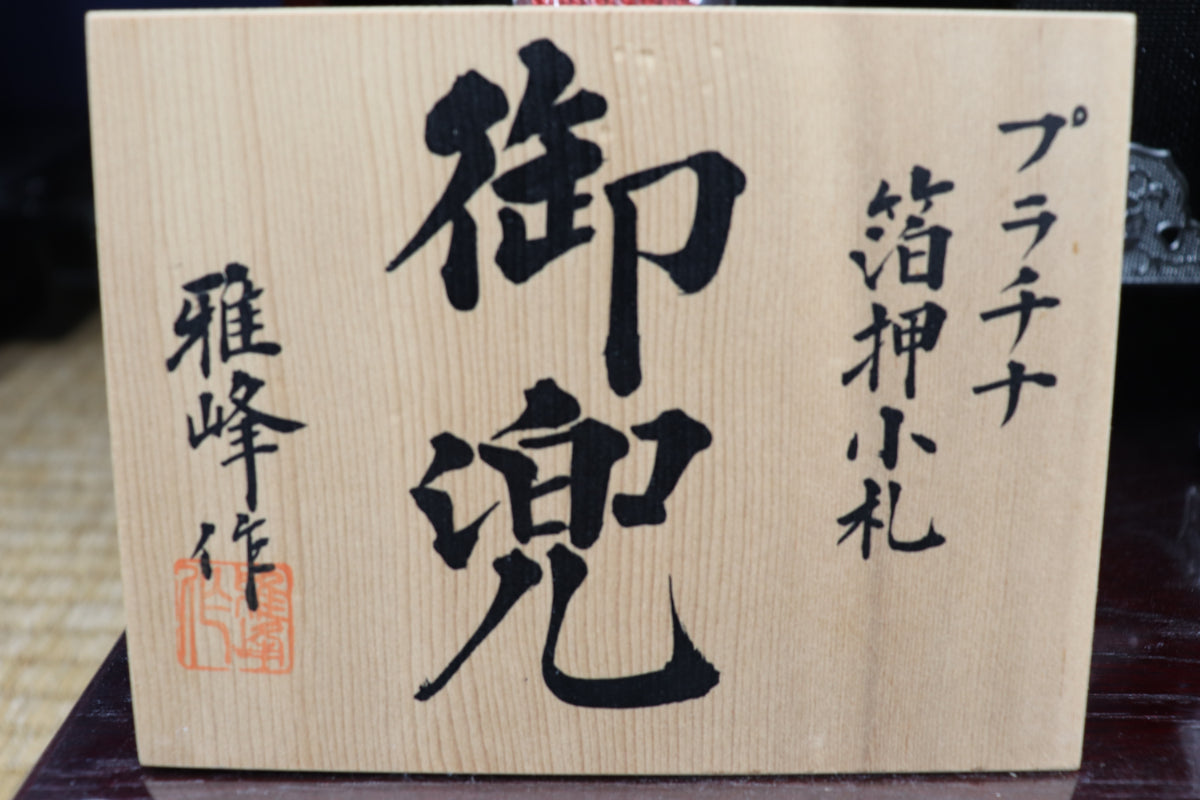 プラチナ
箔押小札
御兜
雅峰作
雅峰作